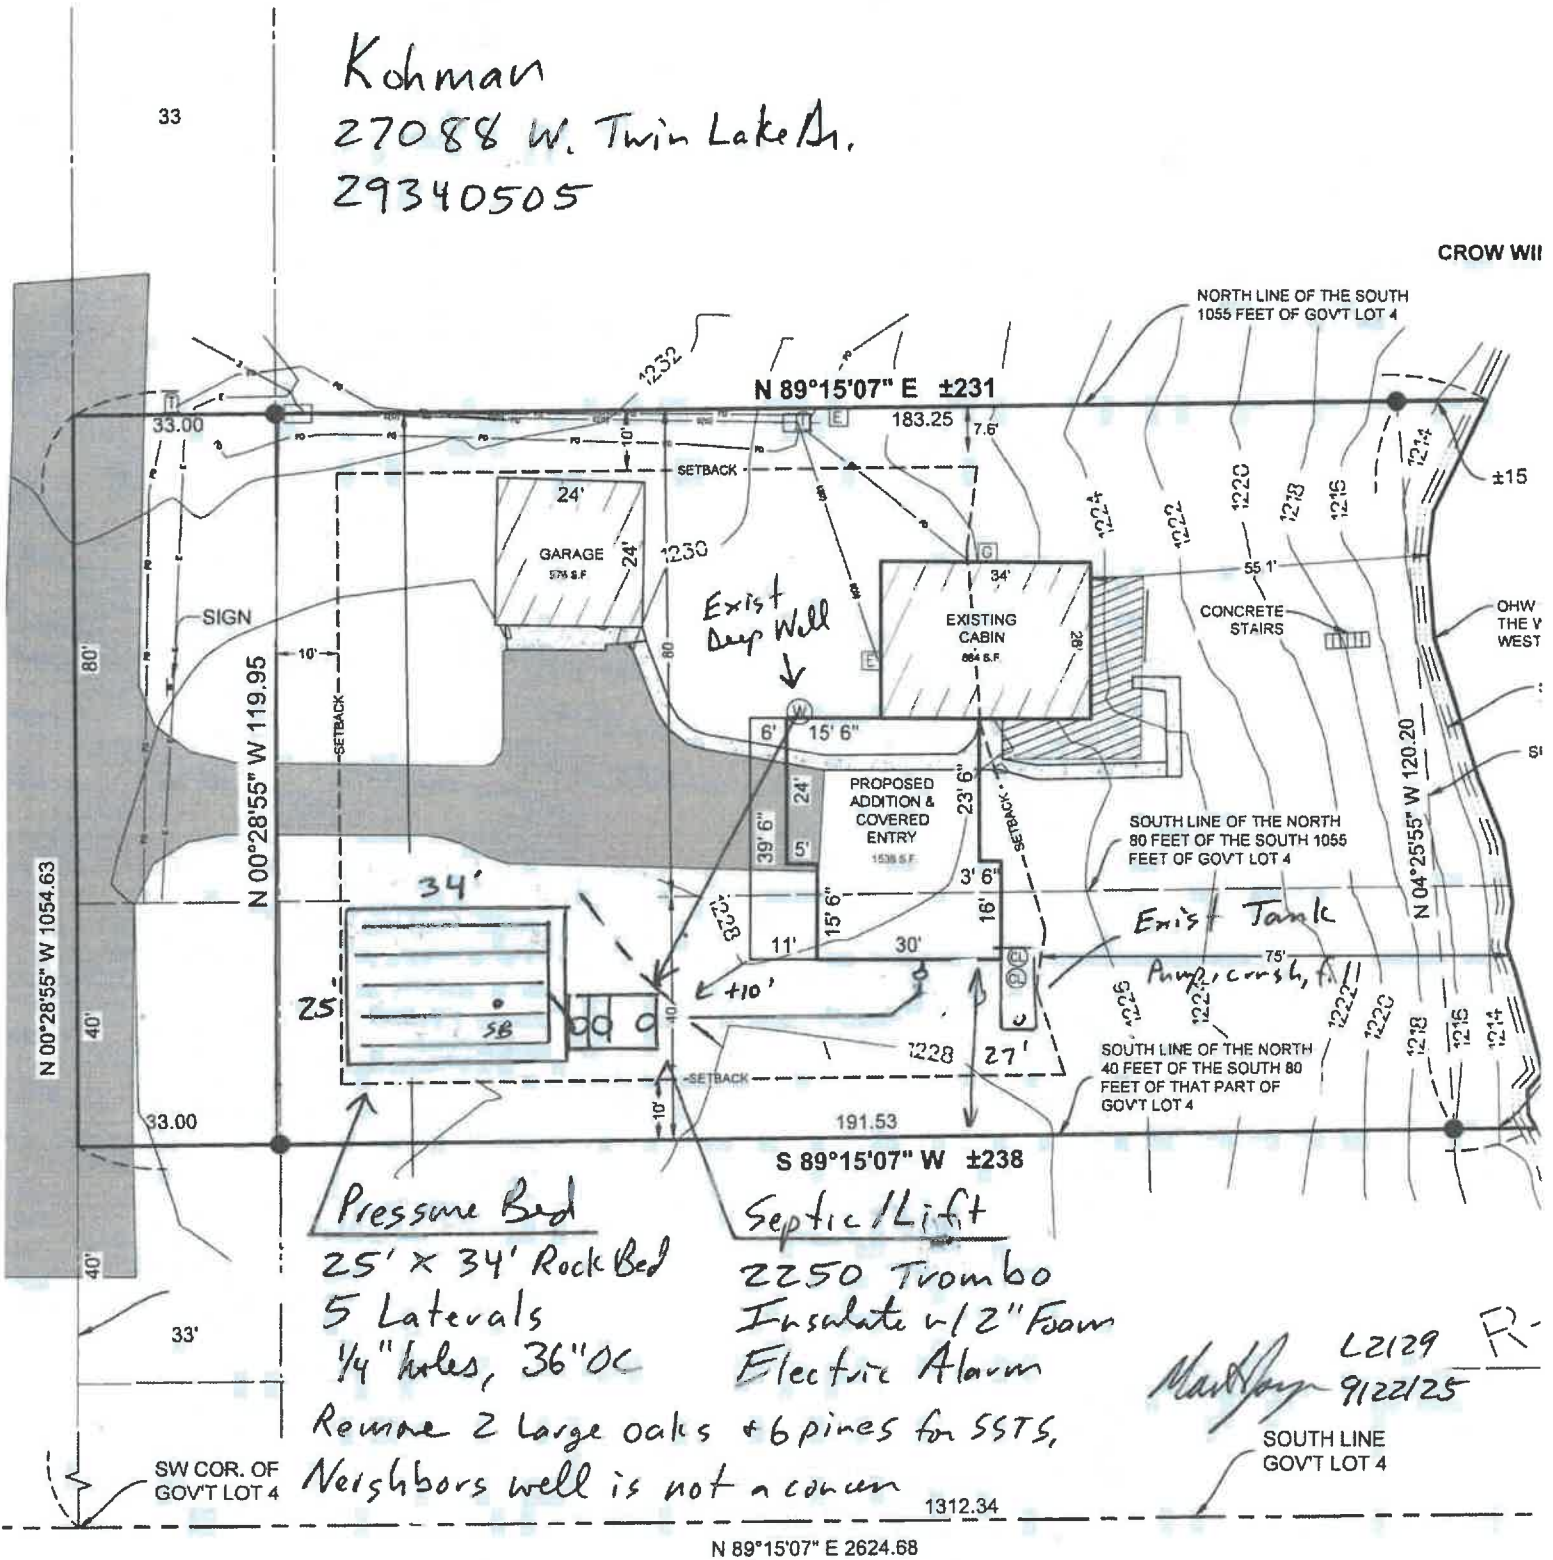 Kohman
27088 W. Twin Lake Dr.
29340505
33
CROW WI
NORTH LINE OF THE SOUTH
1055 FEET OF GOV'T LOT 4
1232
N 89°15'07" E ±231
33.00
T
E
183.25
7.6'
10'
SETBACK
1214
±15
24'
GARAGE
576 S.F.
24'
1230
1224
1222
1220
1218
1216
G
34'
55.1'
Exist
Deep Well
EXISTING
CABIN
884 S.F.
26'
E
CONCRETE
STAIRS
OHW
THE
WEST
SIGN
80'
10'
SETBACK
N 00°28'55" W 119.95
80'
W
6'
15' 6"
PROPOSED
ADDITION &
COVERED
ENTRY
1538 S.F.
24'
23' 6"
39' 6"
5'
SETBACK
N 04°25'55" W 120.20
SOUTH LINE OF THE NORTH
80 FEET OF THE SOUTH 1055
FEET OF GOV'T LOT 4
34'
3' 6"
1228
15' 6"
16'
11'
30'
Exist Tank
75'
Pump, crush, fill
N 00°28'55" W 1054.63
40'
25'
SB
+10'
40'
1228
27'
1226
1222
1220
1218
1216
1214
SOUTH LINE OF THE NORTH
40 FEET OF THE SOUTH 80
FEET OF THAT PART OF
GOV'T LOT 4
SETBACK
10'
33.00
191.53
S 89°15'07" W ±238
Pressure Bed
25' x 34' Rock Bed
5 Laterals
1/4" holes, 36" OC
Septic/Lift
2250 Trombo
Insulate w/ 2" Foam
Electric Alarm
40'
33'
L2129
9/22/25
R-
Remove 2 Large oaks + 6 pines for SSTS.
Neighbors well is not a concern
SW COR. OF
GOV'T LOT 4
SOUTH LINE
GOV'T LOT 4
1312.34
N 89°15'07" E 2624.68